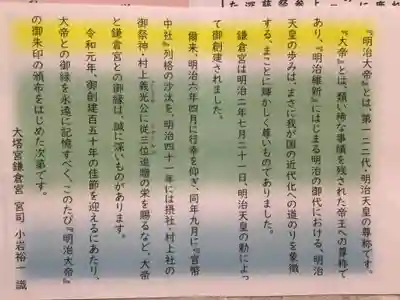 『明治大帝』とは、第一二二代・明治天皇の尊称です。
『大帝』とは、類い稀な事績を残された帝王への尊称で
あり、『明治維新』にはじまる明治の御代における、明治
天皇の歩みは、まさに我が国の近代化への道のりを象徴
する、まことに輝かしく尊いものでありました。
鎌倉宮は明治二年七月二十一日、明治天皇の勅によっ
て御創建されました。
爾来、明治六年四月に行幸を仰ぎ、同年九月に『官幣
中社』列格の沙汰を、明治四十一年には摂社・村上社の
御祭神・村上義光公に従三位追贈の栄を賜るなど、大帝
と鎌倉宮との御縁は、誠に深いものがあります。
令和元年、御創建百五十年の佳節を迎えるにあたり、
大帝との御縁を永遠に記憶すべく、このたび『明治大帝』
の御朱印の頒布をはじめた次第です。
大塔宮鎌倉宮 宮司 小岩裕一 識